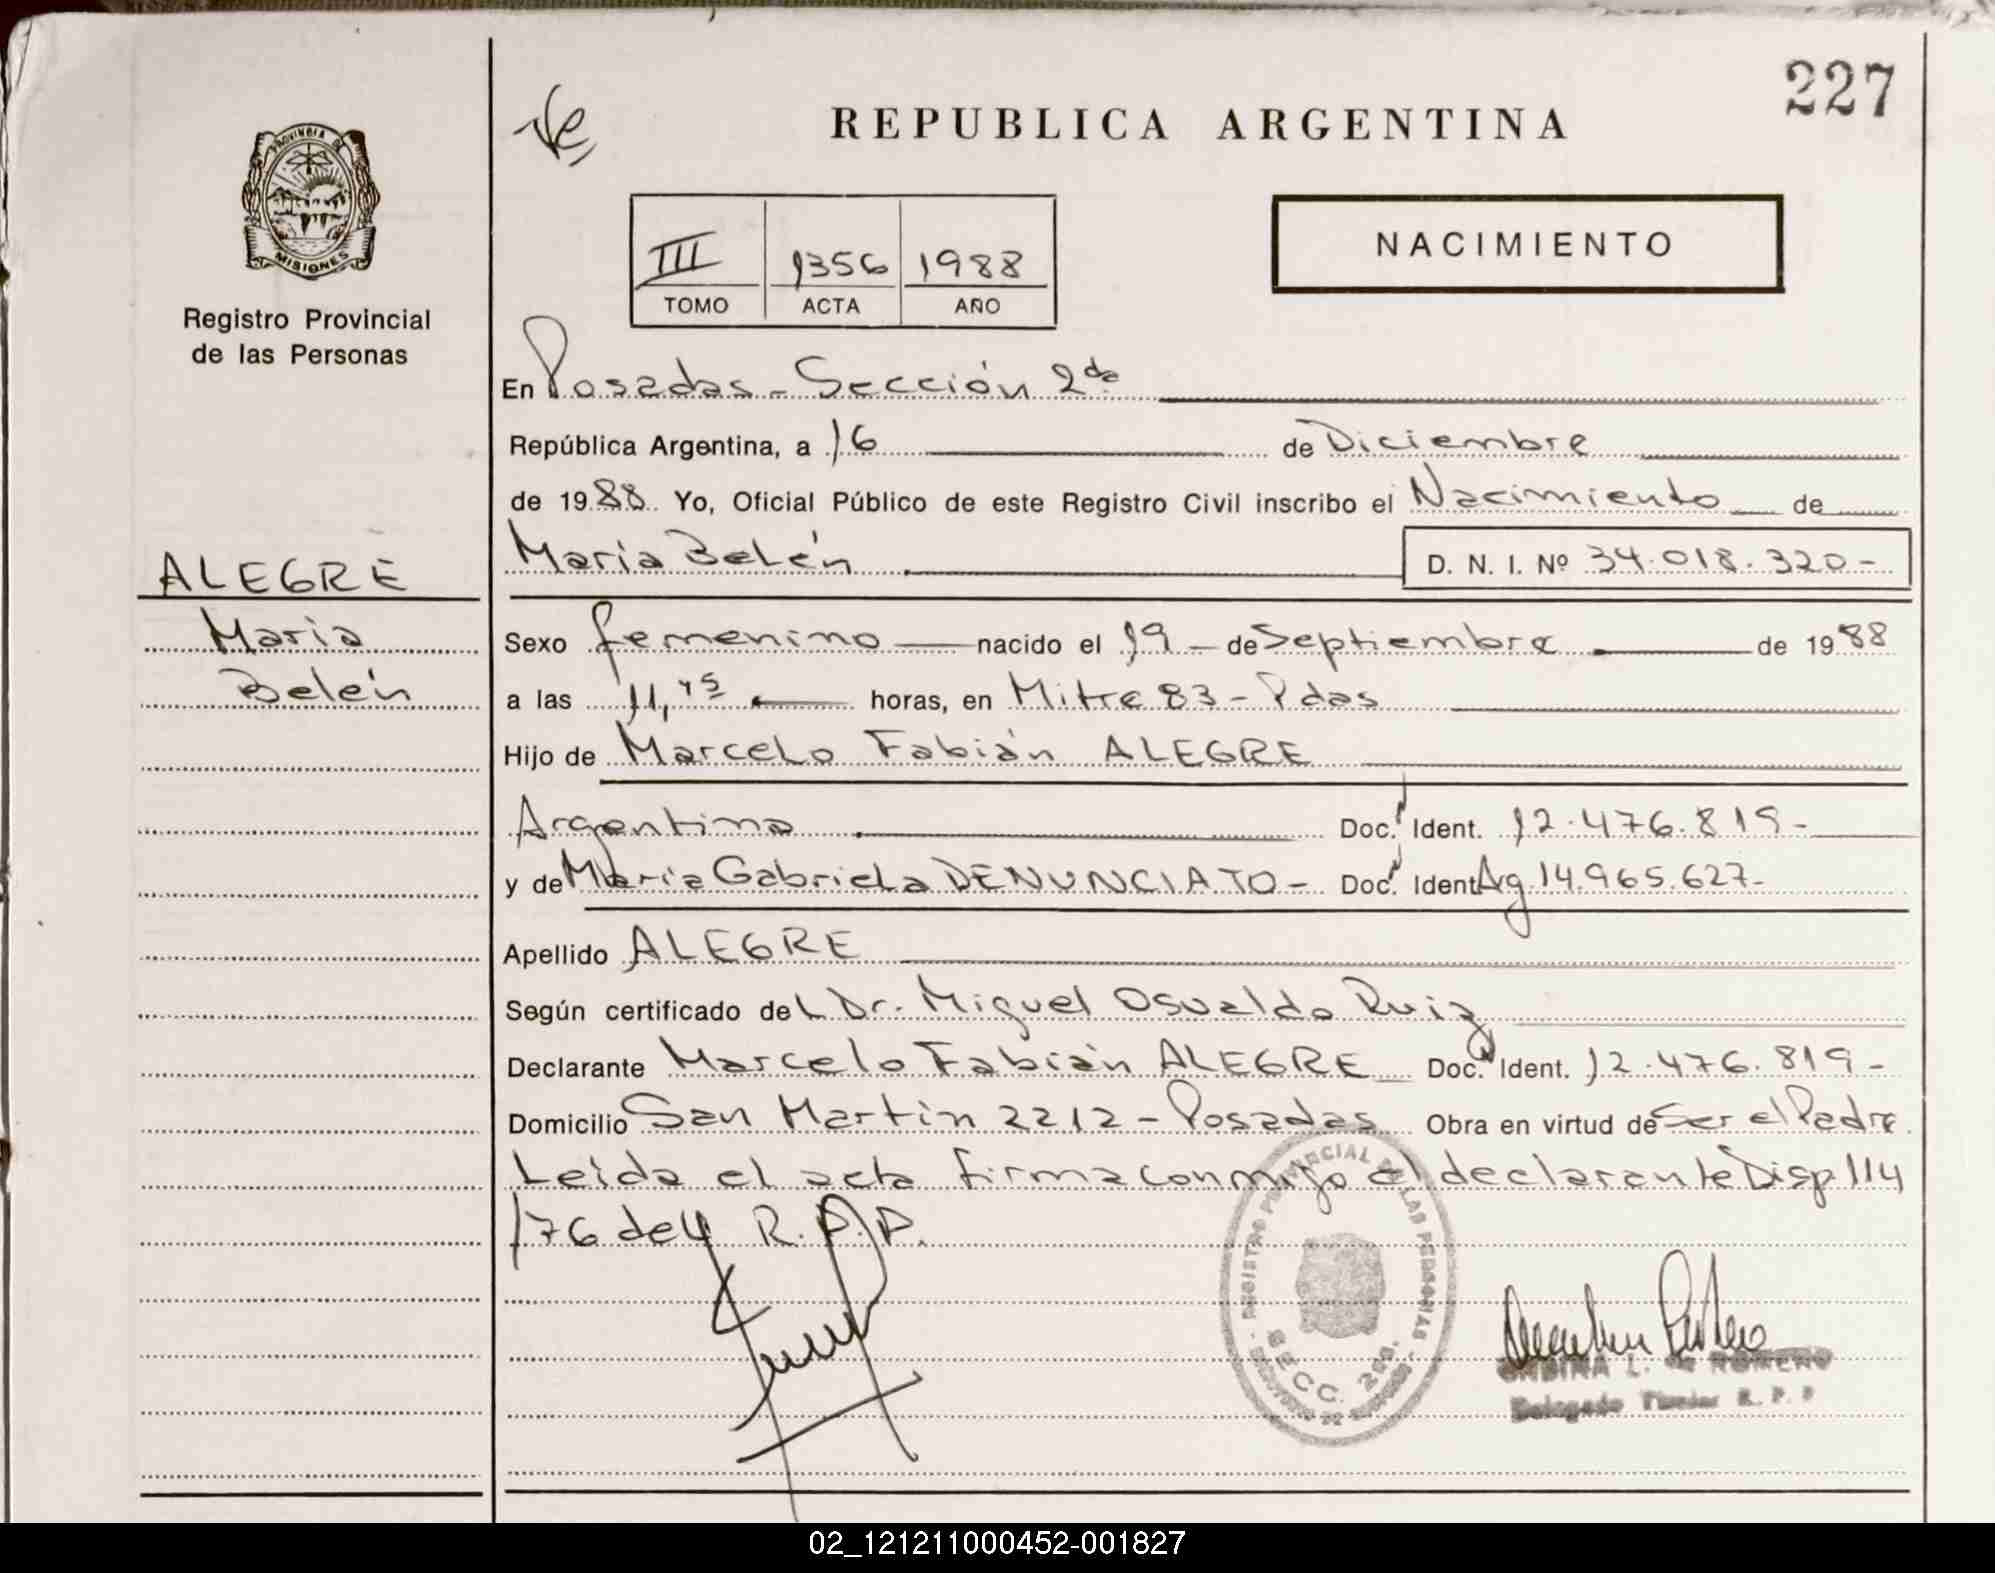 227
Ve
REPUBLICA ARGENTINA
PROVINCIA DE
MISIONES
NACIMIENTO
III 1356 1988
TOMO ACTA AÑO
Registro Provincial
de las Personas
En Posadas - Sección 2da
República Argentina, a 16 de Diciembre
de 1988 Yo, Oficial Público de este Registro Civil inscribo el Nacimiento de
María Belén D. N. I. Nº 34.018.320-
ALEGRE
María
Belén
Sexo femenino nacido el 19 - de Septiembre de 1988
a las 11,45 horas, en Mitre 83 - Pdas
Hijo de Marcelo Fabián ALEGRE
Argentino Doc. Ident. 12.476.819-
y de María Gabriela DENUNCIATO - Doc. Ident Arg 14.965.627-
Apellido ALEGRE
Según certificado del Dr. Miguel Osvaldo Ruiz
Declarante Marcelo Fabián ALEGRE Doc. Ident. 12.476.819-
Domicilio San Martín 2212 - Posadas Obra en virtud de Ser el Padre
Leída el acta firma conmigo el declarante Disp 114
/76 del R.P.P.
REGISTRO PROVINCIAL DE LAS PERSONAS
SECC. 2da.
L. de ROMERO
Delegado Titular R. P. P
02_121211000452-001827